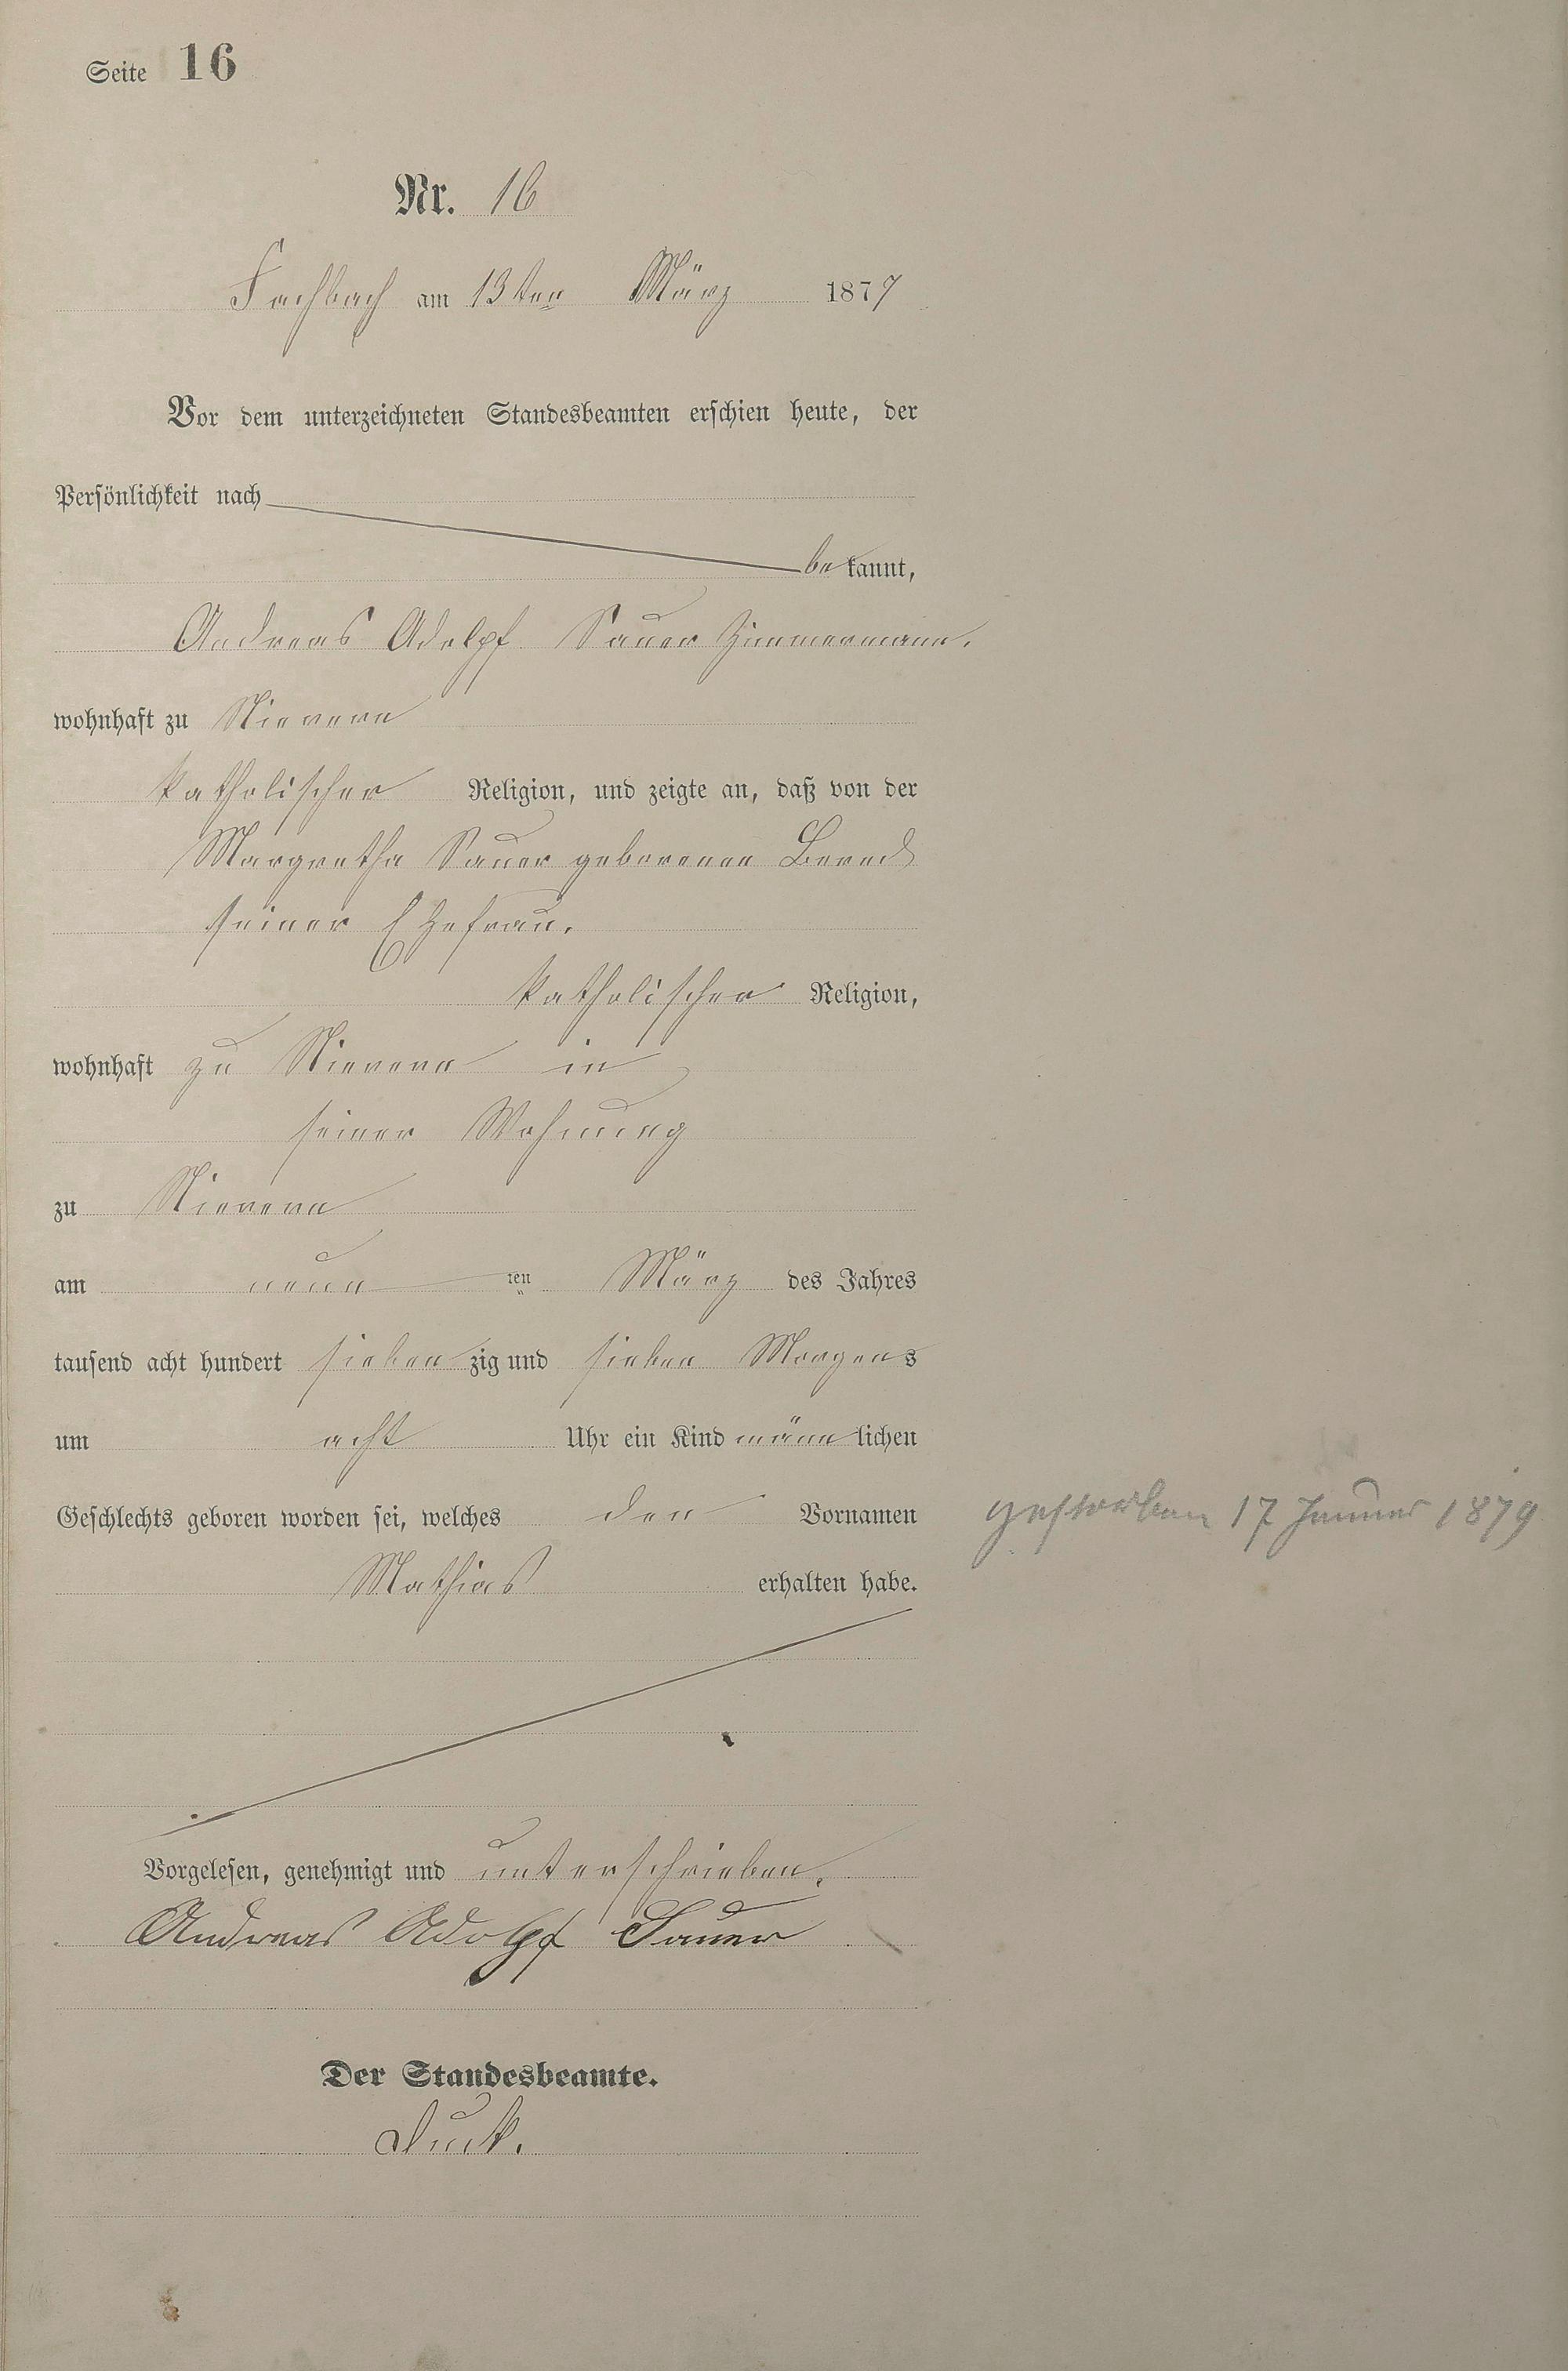 Seite 16
Nr. 16
Fachbach am 13ten März 1877
Vor dem unterzeichneten Standesbeamten erschien heute, der
Persönlichkeit nach
bekannt,
Andreas Adolpf Sauer Zimmermann.
wohnhaft zu Nievern
katholischer Religion, und zeigte an, daß von der
Margretha Sauer geborenen
seiner Ehefrau.
katholischer Religion,
wohnhaft zu Nievern in
seiner Wohnung
zu Nievern
am neun ten März des Jahres
tausend acht hundert siebenzig und sieben Morgens
um acht Uhr ein Kind männlichen
Geschlechts geboren worden sei, welches den Vornamen
gestorben 17 Januar 1879
Mathias erhalten habe.
Vorgelesen, genehmigt und unterschrieben.
Andreas Adolpf Sauer
Der Standesbeamte.